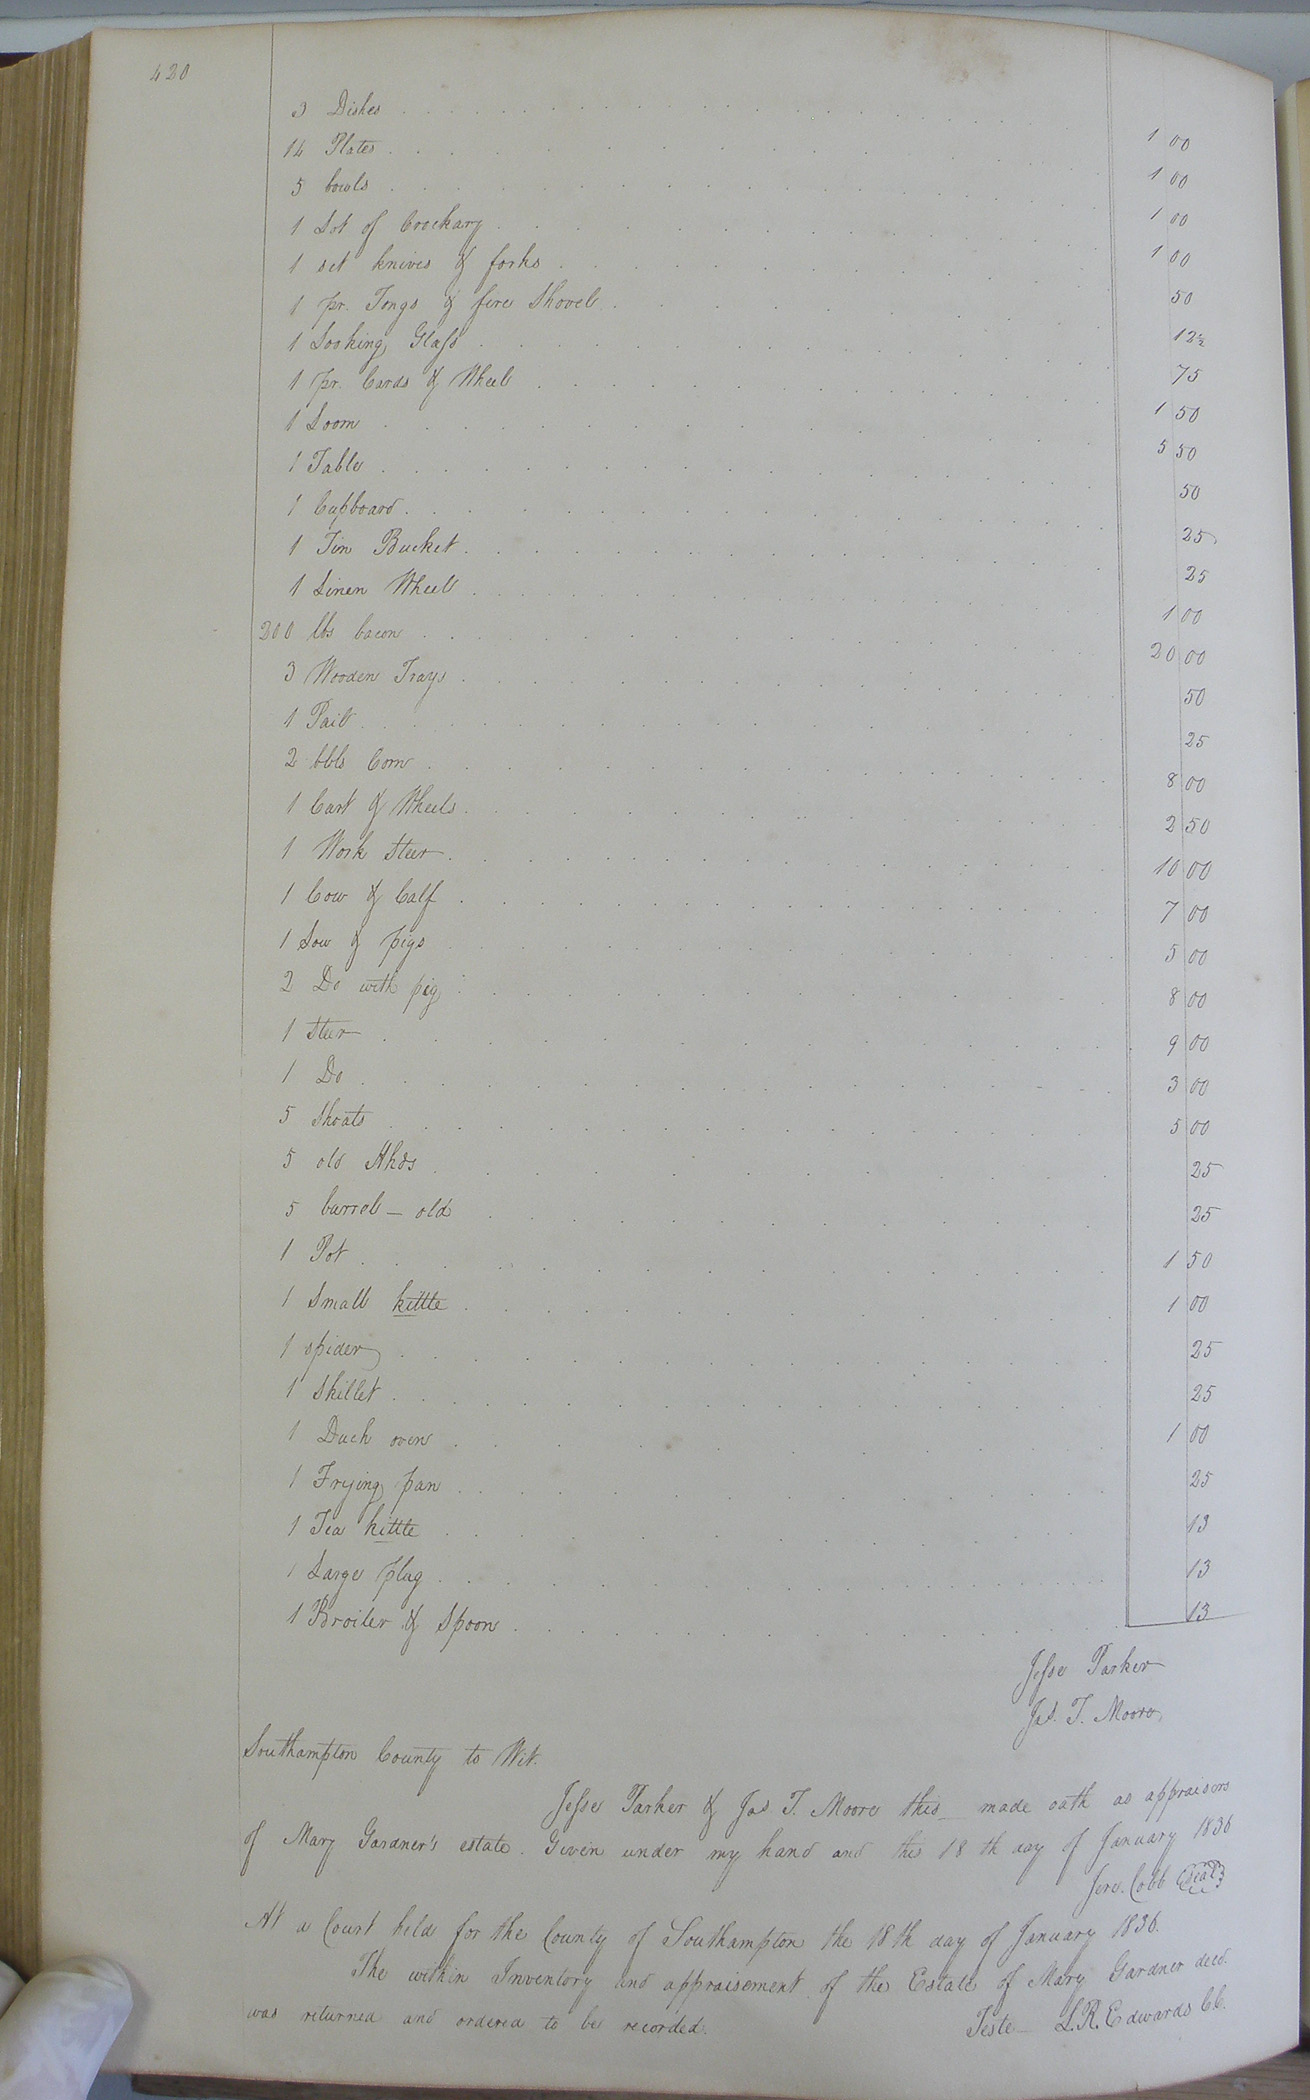 420
3 Dishes 1 00
14 Plates 1 00
5 bowls 1 00
1 Lot of Crockary 1 00
1 set knives & forks 50
1 pr. Tongs & fire Shovel 12½
1 Looking Glass 75
1 pr. Cards & Wheel 1 50
1 Loom 5 50
1 Table 50
1 Cupboard 25
1 Tin Bucket 25
1 Linen Wheel 1 00
200 lbs bacon 20 00
3 Wooden Trays 50
1 Pail 25
2 bbls Corn 8 00
1 Cart & Wheels 2 50
1 Work Steer 10 00
1 Cow & Calf 7 00
1 Sow & pigs 5 00
2 Do with pig 8 00
1 Steer 9 00
1 Do 3 00
5 Shoats 5 00
5 old Hhds 25
5 barrels – old 25
1 Pot 1 50
1 Small kettle 1 00
1 spider 25
1 Skillet 25
1 Duch oven 1 00
1 Frying pan 25
1 Tea kettle 13
1 Large plug 13
1 Broiler & Spoon 13
Jesse Parker
Jas. T. Moore
Southampton County to Wit.
Jesse Parker & Jas T. Moore this made oath as appraisers
of Mary Gardner's estate. Given under my hand and this 18th day of January 1836
Jere. Cobb Seal
At a Court held for the County of Southampton the 18th day of January 1836.
The within Inventory and appraisement of the Estate of Mary Gardner decd.
was returned and ordered to be recorded.
Teste L.R. Edwards CC.